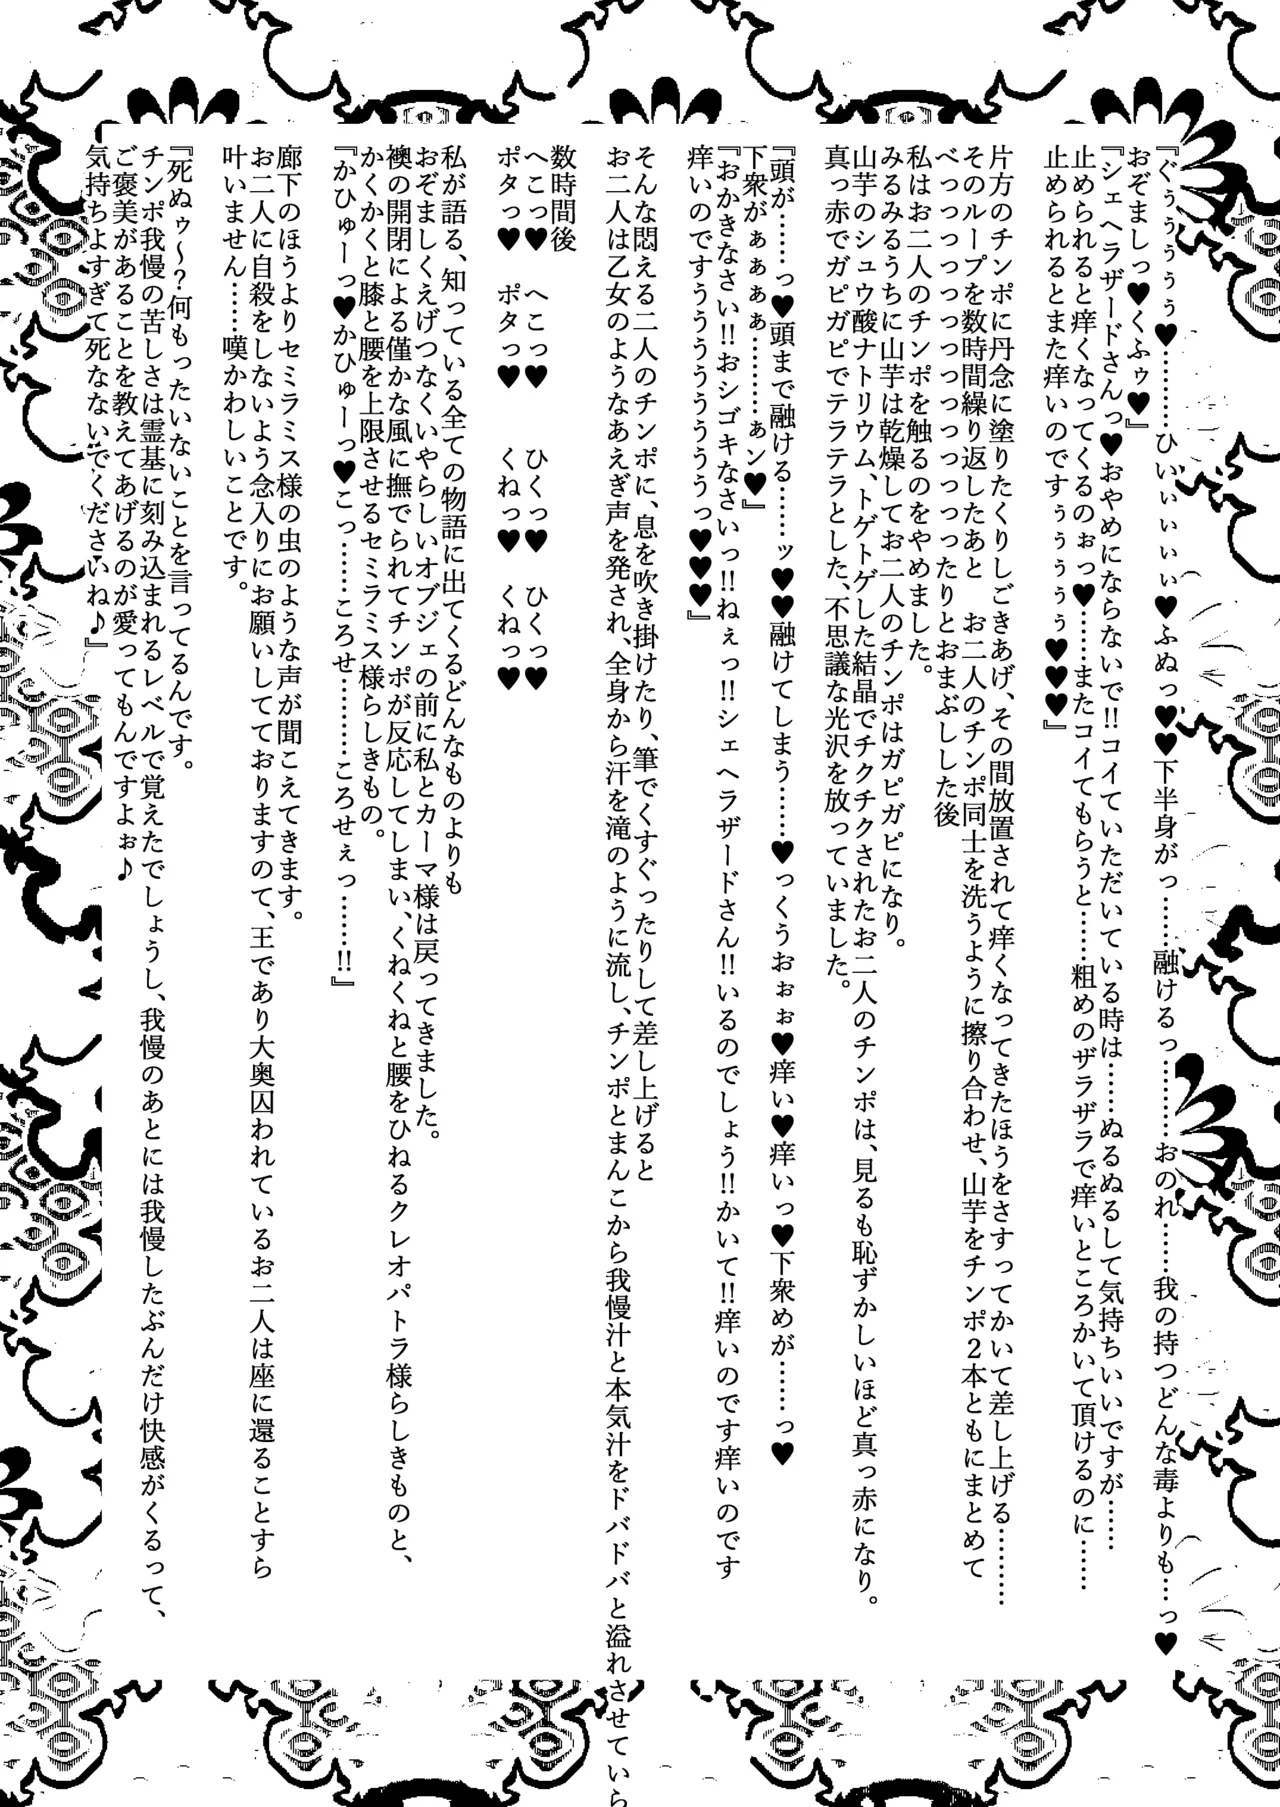 『ぐぅぅぅぅぅ♥………ひいぃぃぃぃ♥ふぬっ♥♥下半身がっ……融けるっ………おのれ……我の持つどんな毒よりも…っ♥
おぞましっ♥くふゥ♥』
『シェヘラザードさんっ♥おやめにならないで!!コイていただいている時は……ぬるぬるして気持ちいいですが……
止められると痒くなってくるのぉっ♥……またコイてもらうと……粗めのザラザラで痒いところかいて頂けるのに……
止められるとまた痒いのですぅぅぅぅぅ♥♥♥』
片方のチンポに丹念に塗りたくりしごきあげ、その間放置されて痒くなってきたほうをさすってかいて差し上げる………
そのループを数時間繰り返したあと　お二人のチンポ同士を洗うように擦り合わせ、山芋をチンポ２本ともにまとめて
べっっっっっっっっっっっっっったりとおまぶしした後
私はお二人のチンポを触るのをやめました。
みるみるうちに山芋は乾燥してお二人のチンポはガピガピになり。
山芋のシュウ酸ナトリウム、トゲトゲした結晶でチクチクされたお二人のチンポは、見るも恥ずかしいほど真っ赤になり。
真っ赤でガピガピでテラテラとした、不思議な光沢を放っていました。
『頭が……っ♥頭まで融ける……ッ♥♥融けてしまう……♥っくうおぉぉ♥痒い♥痒いっ♥下衆めが……っ♥
下衆がぁぁぁぁ………ぁン♥』
『おかきなさい!!おシゴキなさいっ!!ねぇっ!!シェヘラザードさん!!いるのでしょう!!かいて!!痒いのです痒いのです
痒いのですうううううううっ♥♥♥』
そんな悶える二人のチンポに、息を吹き掛けたり、筆でくすぐったりして差し上げると
お二人は乙女のようなあえぎ声を発され、全身から汗を滝のように流し、チンポとまんこから我慢汁と本気汁をドバドバと溢れさせていら
数時間後
へこっ♥　へこっ♥　　ひくっ♥　ひくっ♥
ポタっ♥　ポタっ♥　　くねっ♥　くねっ♥
私が語る、知っている全ての物語に出てくるどんなものよりも
おぞましくえげつなくいやらしいオブジェの前に私とカーマ様は戻ってきました。
襖の開閉による僅かな風に撫でられてチンポが反応してしまい、くねくねと腰をひねるクレオパトラ様らしきものと、
かくかくと膝と腰を上限させるセミラミス様らしきもの。
『かひゅーっ♥かひゅーっ♥こっ……ころせ………ころせぇっ……!!』
廊下のほうよりセミラミス様の虫のような声が聞こえてきます。
お二人に自殺をしないよう念入りにお願いしてておりますのて、王であり大奥囚われているお二人は座に還ることすら
叶いません……嘆かわしいことです。
『死ぬゥ～?何もったいないことを言ってるんです。
チンポ我慢の苦しさは霊基に刻み込まれるレベルで覚えたでしょうし、我慢のあとには我慢したぶんだけ快感がくるって、
ご褒美があることを教えてあげるのが愛ってもんですよぉ♪
気持ちよすぎて死なないでくださいね♪』